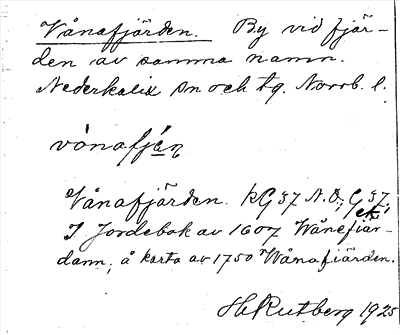 Vånafjärden. By vid fjär-
den av samma namn.
Nederkalix sn och tg. Norrb. l.
vònafjḗn
Vånafjärden. KG 37 N.O; G 37;
I Jordebok av 1607 Wånefiär-
dann; å karta av 1750 Wånafiärden.
H Rutberg 1925